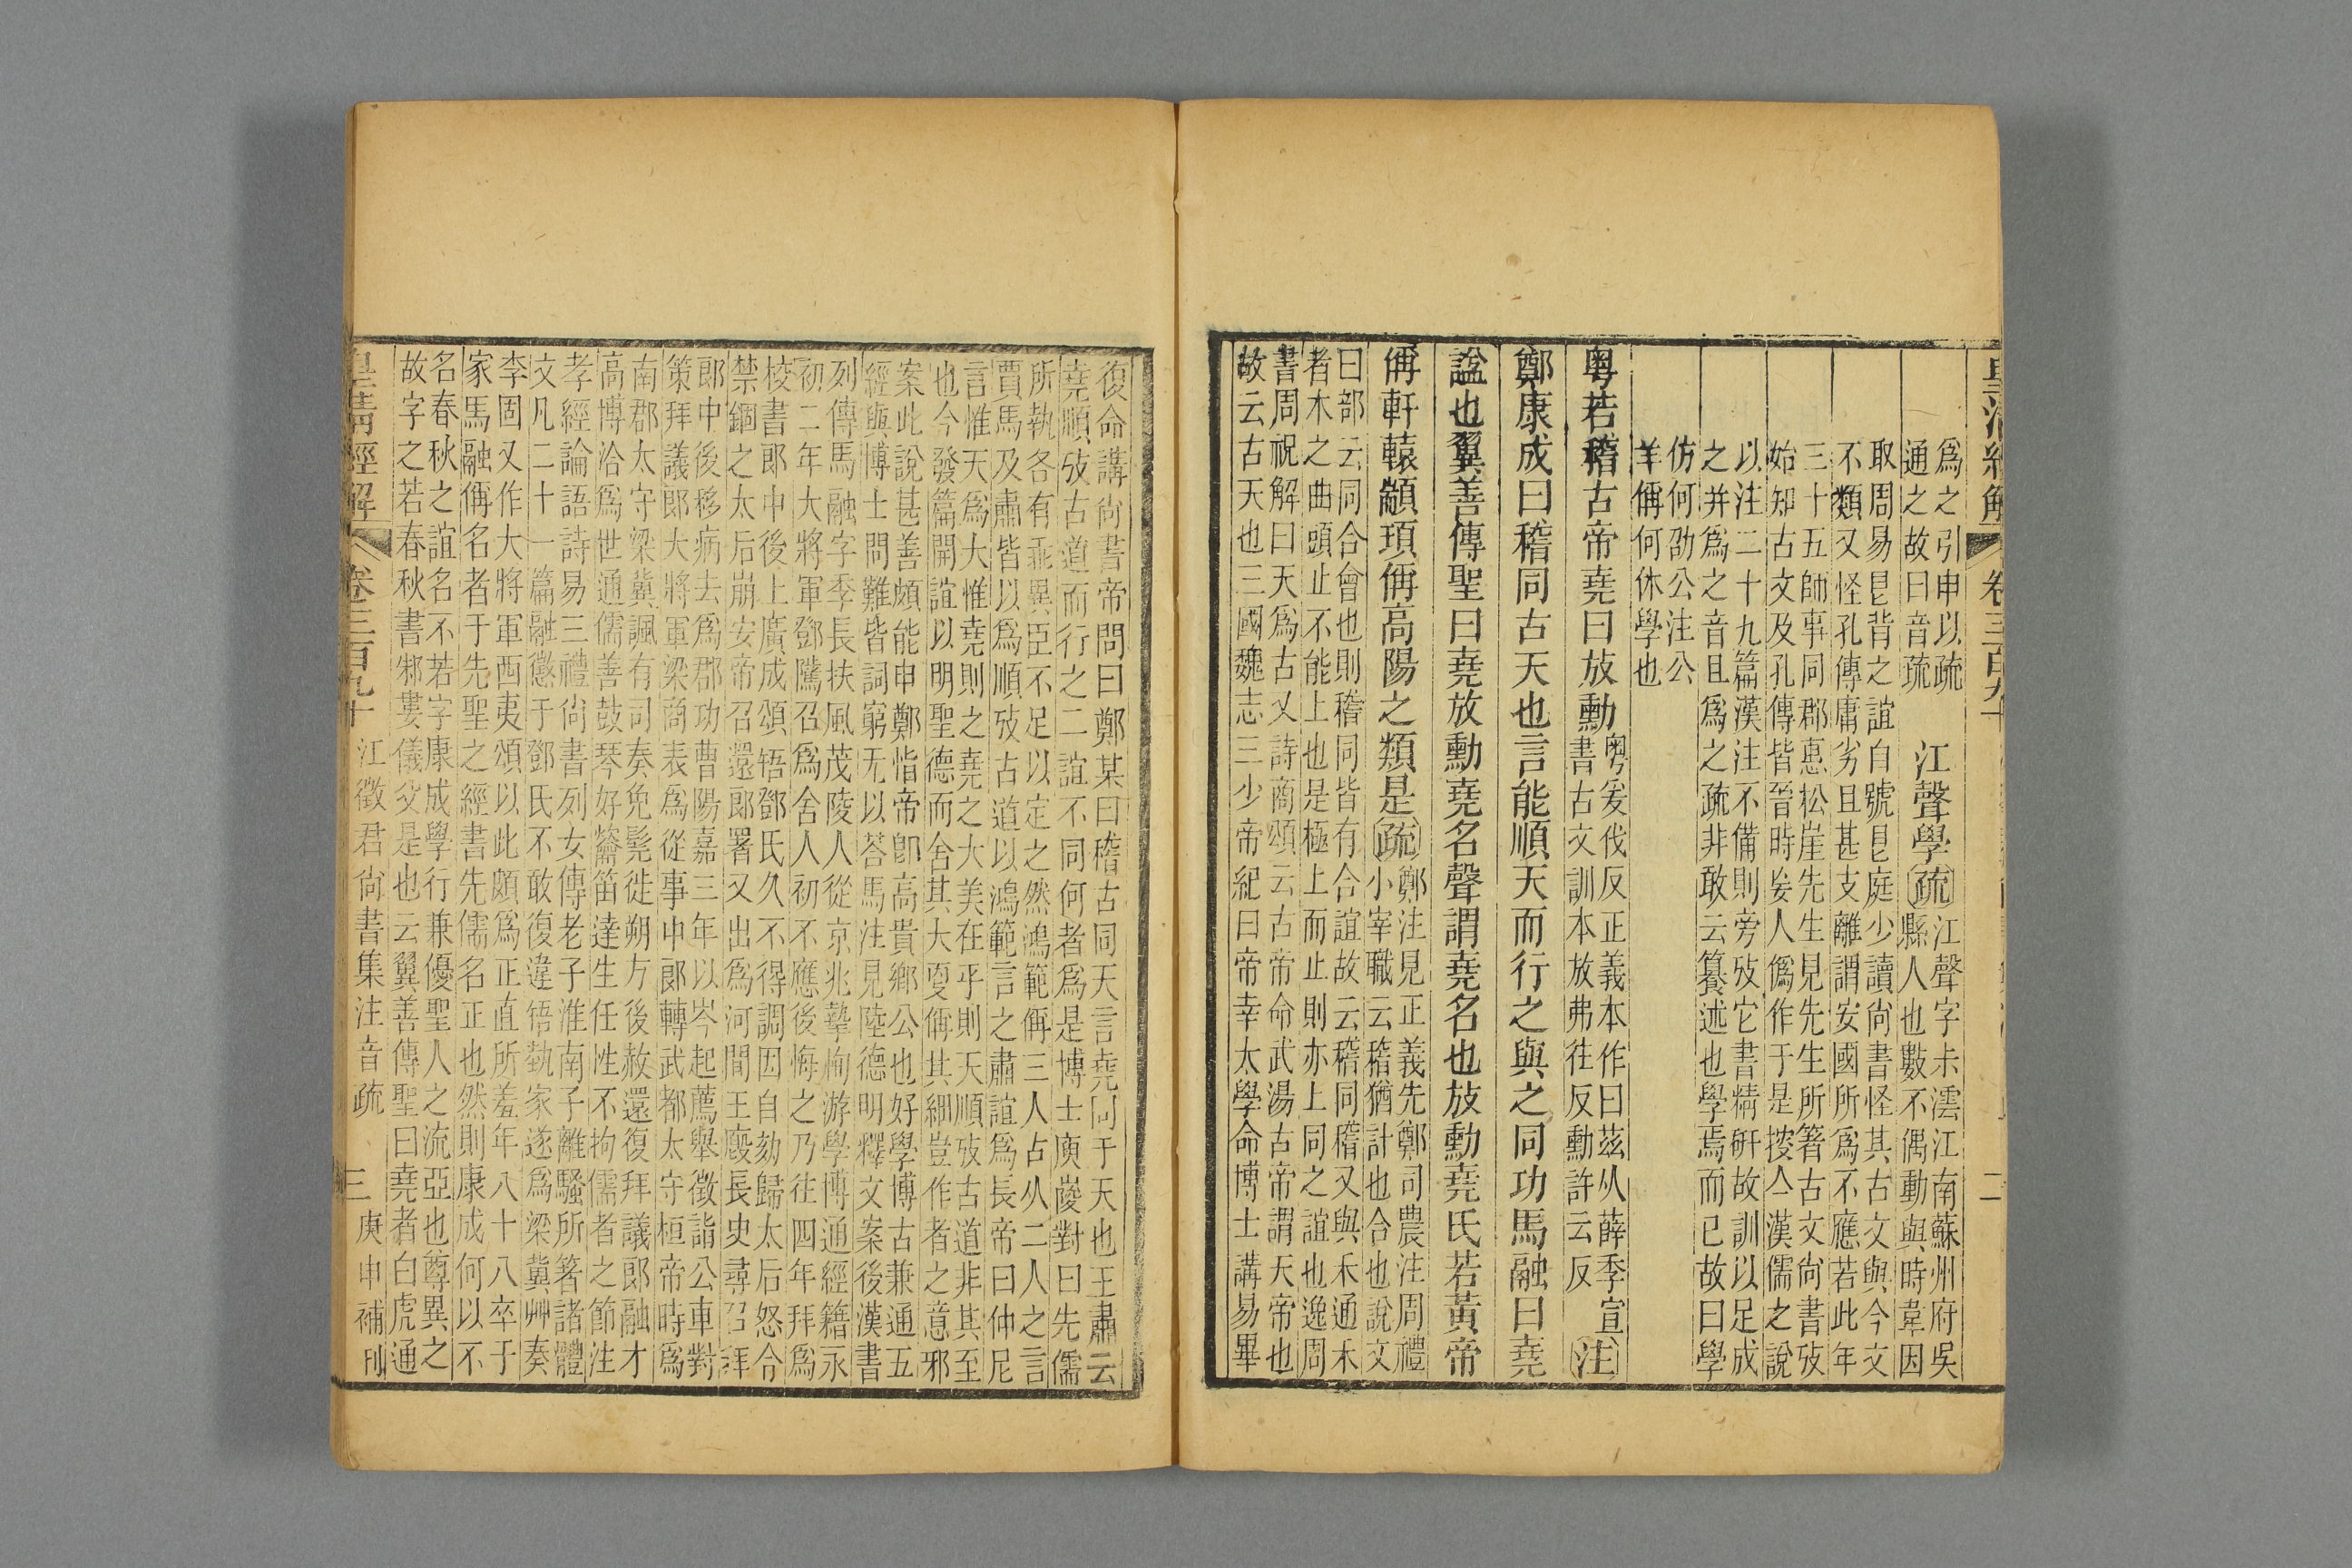 皇清經解
卷三百九十
二
爲之引申以疏
通之故曰音疏
江聲學疏
江聲字未澐江南蘇州府吳
縣人也數不偶動與時韋因
取周易㠯背之誼自號㠯庭少讀尙書怪其古文與今文
不類又怪孔傳庸劣且甚支離謂安國所爲不應若此年
三十五師事同郡惠松崖先生見先生所箸古文尙書攷
始知古文及孔傳皆晉時妄人僞作于是搜亼漢儒之說
以注二十九篇漢注不備則旁攷它書精硏故訓以足成
之并爲之音且爲之疏非敢云籑述也學焉而已故曰學
仿何劭公注公
羊偁何休學也
粵若稽古帝堯曰放勳
粵爰伐反正義本作曰茲从薛季宣
書古文訓本放弗往反勳許云反
注
鄭康成曰稽同古天也言能順天而行之與之同功馬融曰堯
諡也翼善傳聖曰堯放勳堯名聲謂堯名也放勳堯氏若黃帝
偁軒轅顓頊偁高陽之類是疏
鄭注見正義先鄭司農注周禮
小宰職云稽猶計也合也說文
曰部云同合會也則稽同皆有合誼故云稽同稽又與禾通禾
者木之曲頭止不能上也是極上而止則亦上同之誼也逸周
書周祝解曰天爲古又詩商頌云古帝命武湯古帝謂天帝也
故云古天也三國魏志三少帝紀曰帝幸太學命博士講易畢
復命講尙書帝問曰鄭某曰稽古同天言堯同于天也王肅云
堯順攷古道而行之二誼不同何者爲是博士庾峻對曰先儒
所執各有乖異臣不足以定之然鴻範偁三人占从二人之言
賈馬及肅皆以爲順攷古道以鴻範言之肅誼爲長帝曰仲尼
言惟天爲大惟堯則之堯之大美在乎則天順攷古道非其至
也今發篇開誼以明聖德而舍其大更偁其細豈作者之意邪
案此說甚善頗能申鄭恉帝卽高貴鄉公也好學博古兼通五
經與博士問難皆詞窮无以荅馬注見陸德明釋文案後漢書
列傳馬融字季長扶風茂陵人從京兆摯恂游學博通經籍永
初二年大將軍鄧騭召爲舍人初不應後悔之乃往四年拜爲
校書郞中後上廣成頌啎鄧氏久不得調因自劾歸太后怒令
禁錮之太后崩安帝召還郞署又出爲河閒王廏長史尋召拜
郞中後移病去爲郡功曹陽嘉三年以岑起薦舉徵詣公車對
策拜議郞大將軍梁商表爲從事中郞轉武都太守桓帝時爲
南郡太守梁冀諷有司奏免髡徙朔方後赦還復拜議郞融才
高博洽爲世通儒善鼓琴好籥笛達生任性不拘儒者之節注
孝經論語詩易三禮尙書列女傳老子淮南子離騷所箸諸體
文凡二十一篇融懲于鄧氏不敢復違啎埶家遂爲梁冀艸奏
李固又作大將軍西夷頌以此頗爲正直所羞年八十八卒于
家馬融偁名者于先聖之經書先儒名正也然則康成何以不
名春秋之誼名不若字康成學行兼優聖人之流亞也尊異之
故字之若春秋書邾婁儀父是也云翼善傳聖曰堯者白虎通
皇清經解
卷三百九十
江徵君尙書集注音疏
三
庚申補刊